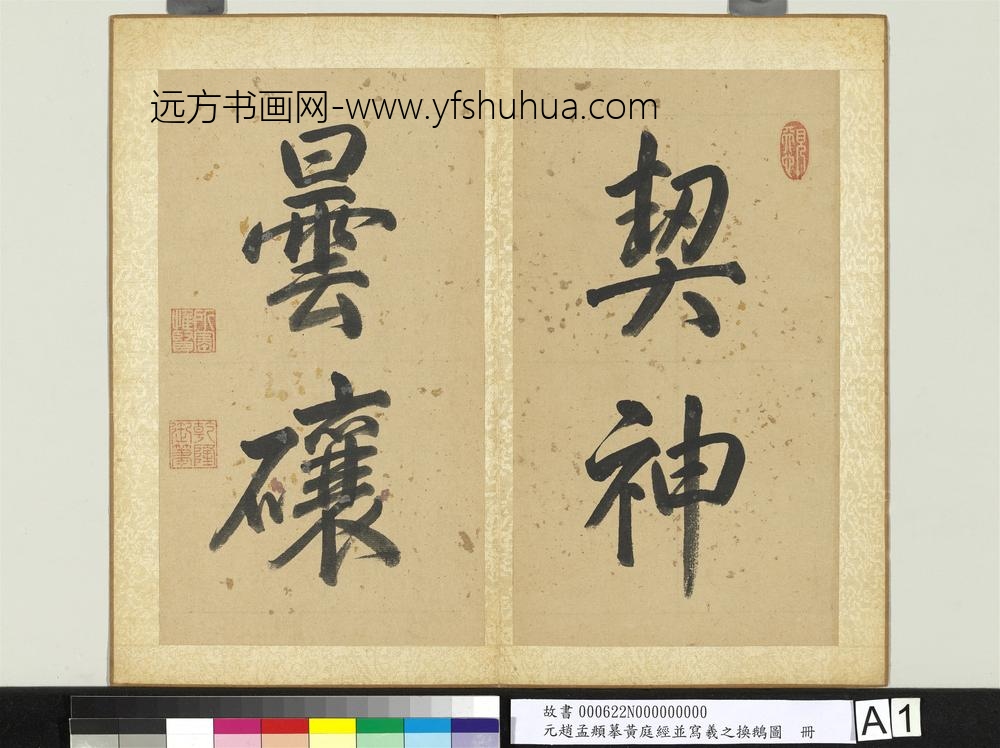 远方书画网-www.yfshuhua.com
契神
曇礦
乾隆
御筆
故書 000622N000000000
元趙孟頫摹黃庭經並寫羲之換鵝圖 冊
A1